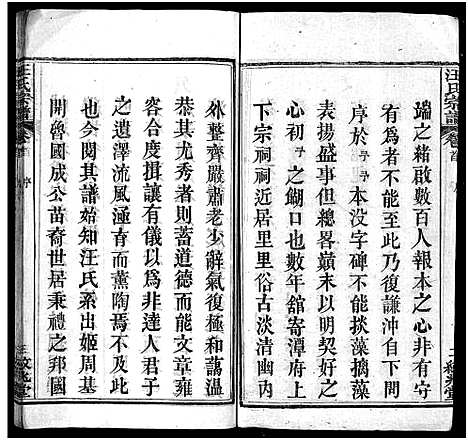 汪氏宗譜
卷首
序
端之緒啟數百人報本之心非有
猷有爲者不能至此乃復謙沖自下問
序於予予本沒字碑不能掞藻摛
表揚盛事但總畧巔末以明契好云
心初予之餬口也數年舘寄潭府上
下宗祠祠近居里里俗古淡清幽
外整齊嚴肅老少辭氣復和藹溫
恭其尤秀者則蓄道德而能文章雍
容合度揖讓有儀以爲非達人君子
之遺澤流風涵育而薰陶焉不及此
也今閱其譜始知汪氏系出姬周基
開魯國成公苗裔世居秉禮之邦國
汪氏宗譜
卷首
序